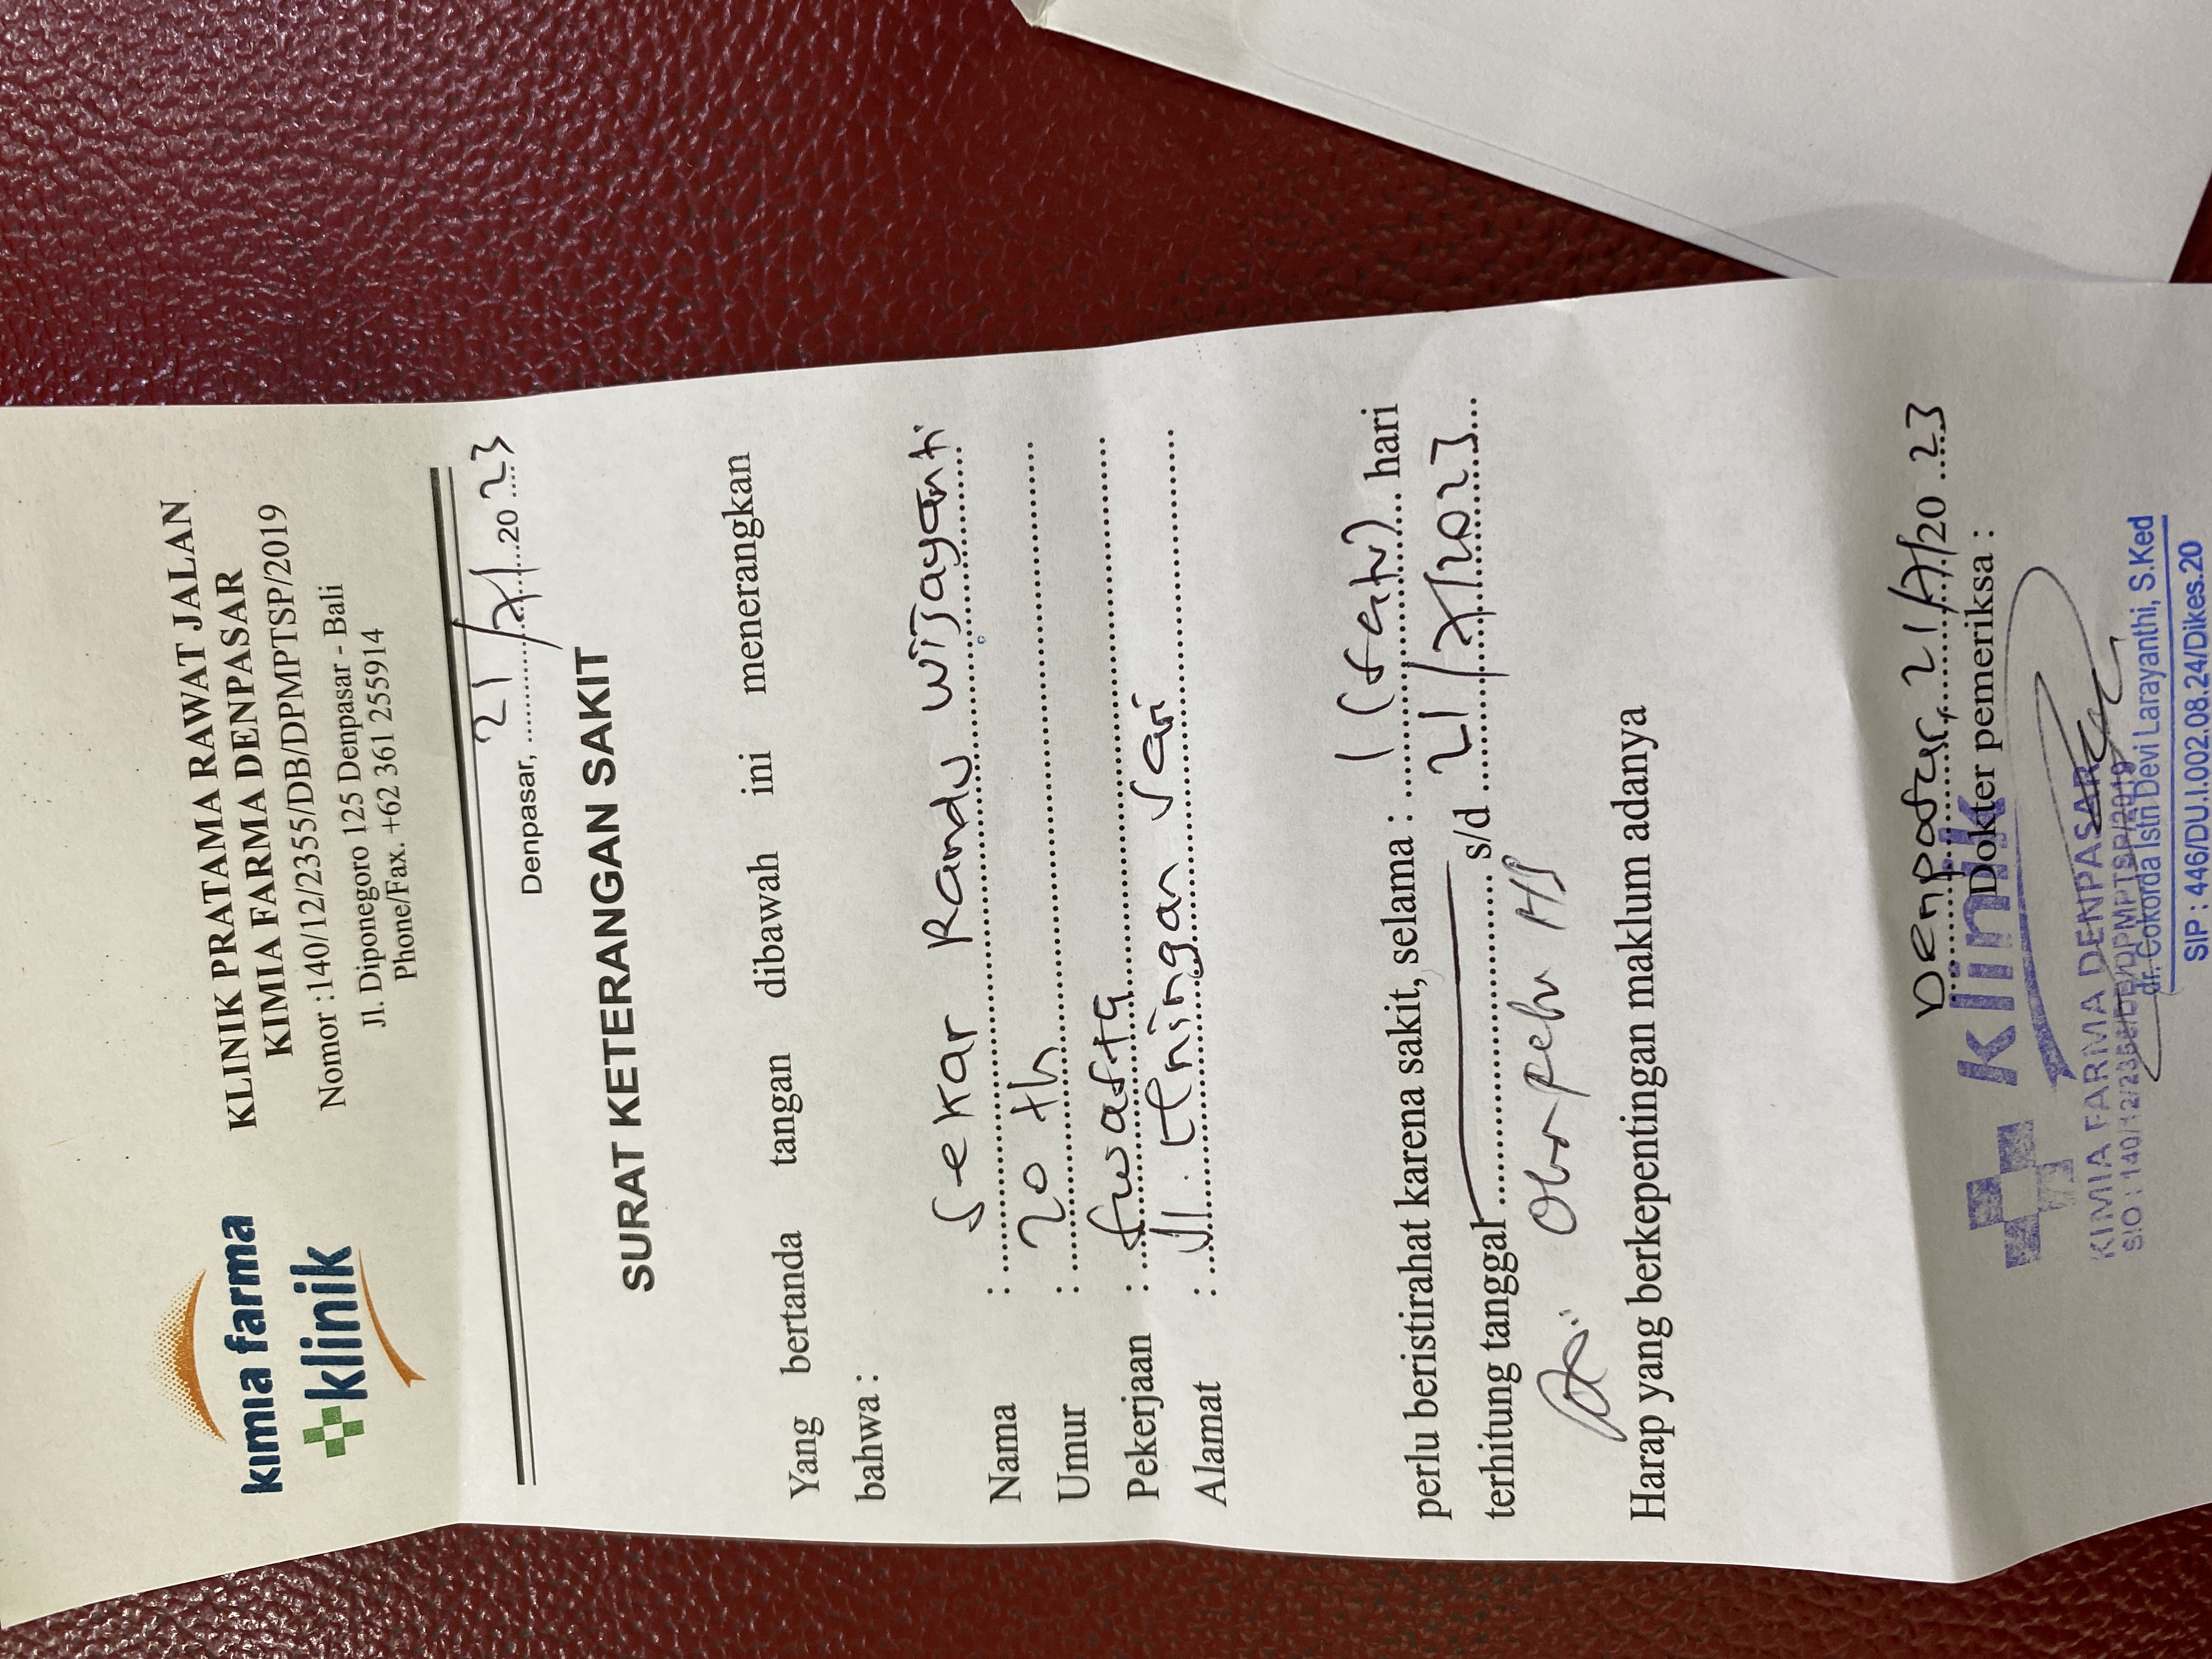 kimia farma
klinik
KLINIK PRATAMA RAWAT JALAN
KIMIA FARMA DENPASAR
Nomor :140/12/2355/DB/DPMPTSP/2019
Jl. Diponegoro 125 Denpasar - Bali
Phone/Fax. +62 361 255914
Denpasar, 21/7/2023
SURAT KETERANGAN SAKIT
Yang bertanda tangan dibawah ini menerangkan
bahwa :
Nama : Sekar Randu Wijayanti
Umur : 20 th
Pekerjaan : Swasta
Alamat : Jl. Sari
perlu beristirahat karena sakit, selama : 1 (satu) hari
terhitung tanggal s/d 21/7/2023
Harap yang berkepentingan maklum adanya
Denpasar, 21/7/2023
klinik
Dokter pemeriksa :
KIMIA FARMA DENPASAR
SIO : 140/12/2355/DB/DPMPTSP/2019
dr. Cokorda Istri Devi Larayanthi, S.Ked
SIP : 446/DU.I.002.08.24/Dikes.20